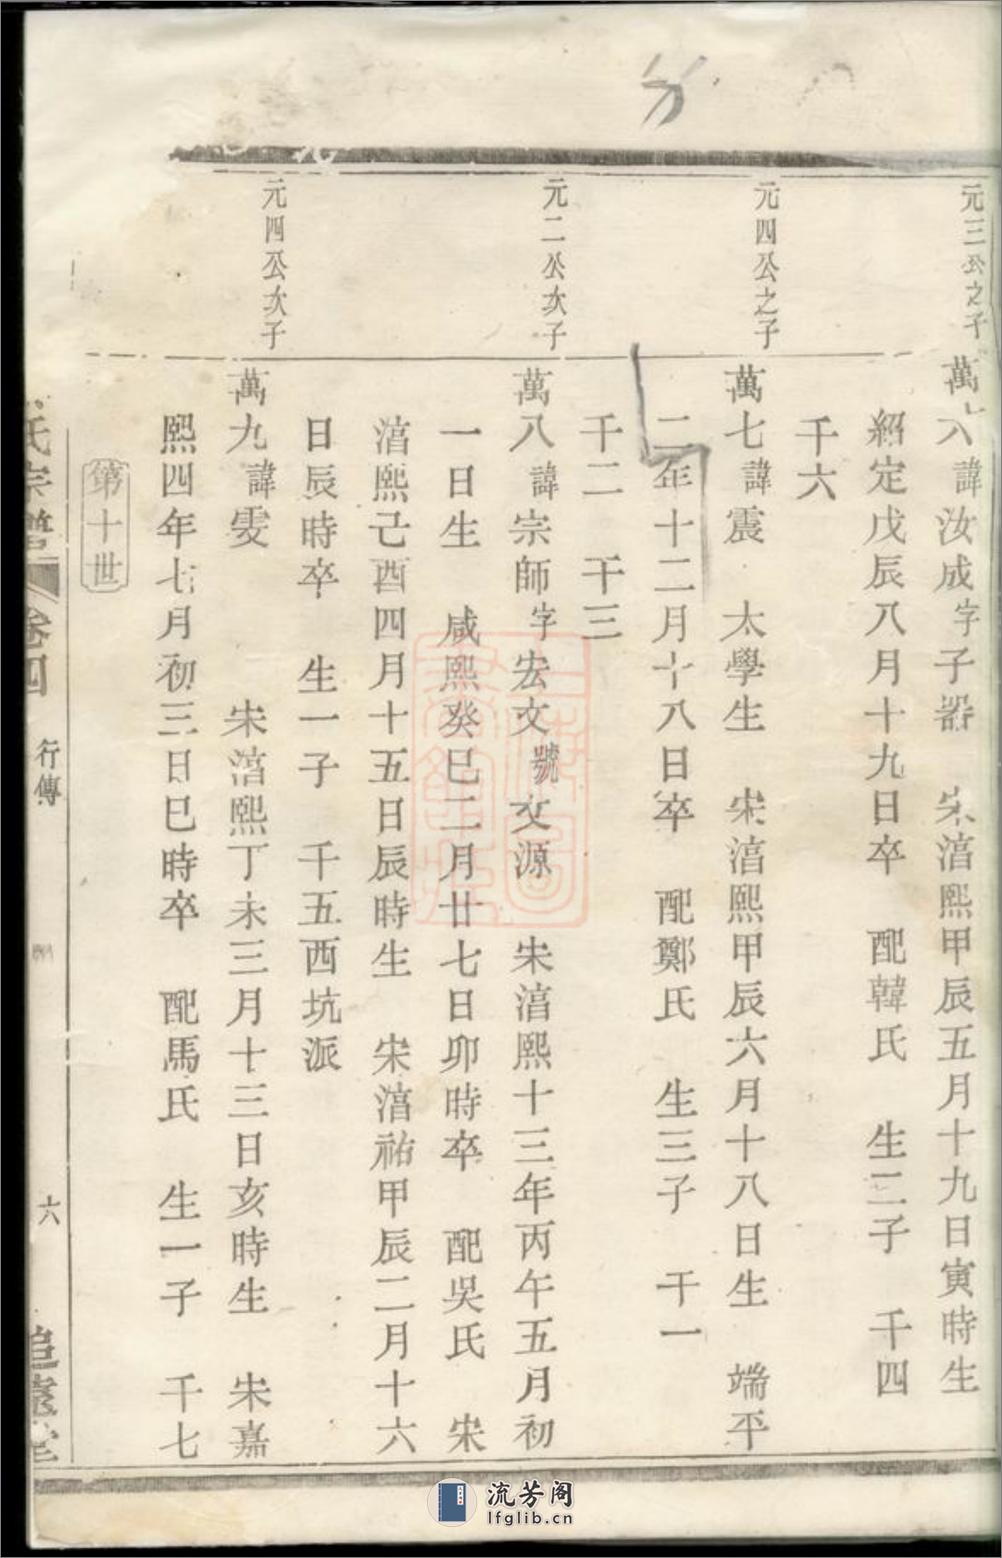 元三公之子
萬六諱汝成字子器 宋湻熙甲辰五月十九日寅時生
紹定戊辰八月十九日卒 配韓氏 生二子 千四
千六
元四公之子
萬七諱震 太學生 宋湻熙甲辰六月十八日生 端平
二年十二月十八日卒 配鄭氏 生三子 千一
千二 千三
元二公次子
萬八諱宗師字宏文號文源 宋湻熙十三年丙午五月初
一日生 咸熙癸巳二月廿七日卯時卒 配吳氏 宋
湻熙己酉四月十五日辰時生 宋湻祐甲辰二月十六
日辰時卒 生一子 千五西坑派
元四公次子
萬九諱雯 宋湻熙丁未三月十三日亥時生 宋嘉
熙四年七月初三日巳時卒 配馬氏 生一子 千七
第十世
氏宗譜 卷四 行傳 六 追遠堂
流芳阁
lfglib.cn